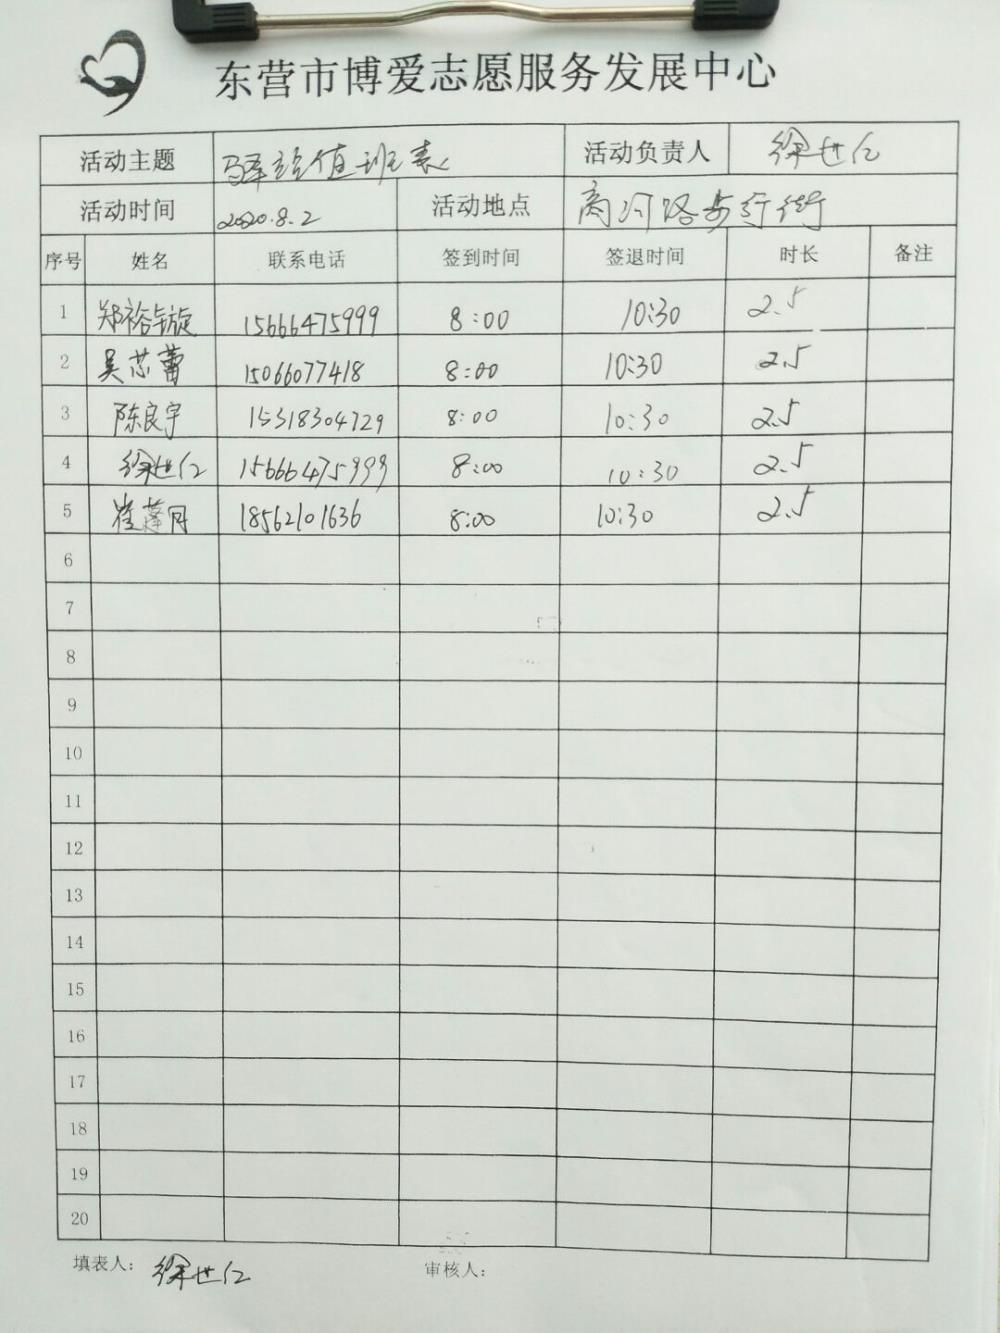 东营市博爱志愿服务发展中心
活动主题 驿站值班表 活动负责人 徐世仁
活动时间 2020.8.2 活动地点 商河路步行街
序号 姓名 联系电话 签到时间 签退时间 时长 备注
1 郑裕旋 15666475999 8:00 10:30 2.5
2 吴芯蕾 15066077418 8:00 10:30 2.5
3 陈良宇 15318304729 8:00 10:30 2.5
4 徐世仁 15666475999 8:00 10:30 2.5
5 崔蓬月 18562101636 8:00 10:30 2.5
6
7
8
9
10
11
12
13
14
15
16
17
18
19
20
填表人： 徐世仁 审核人：